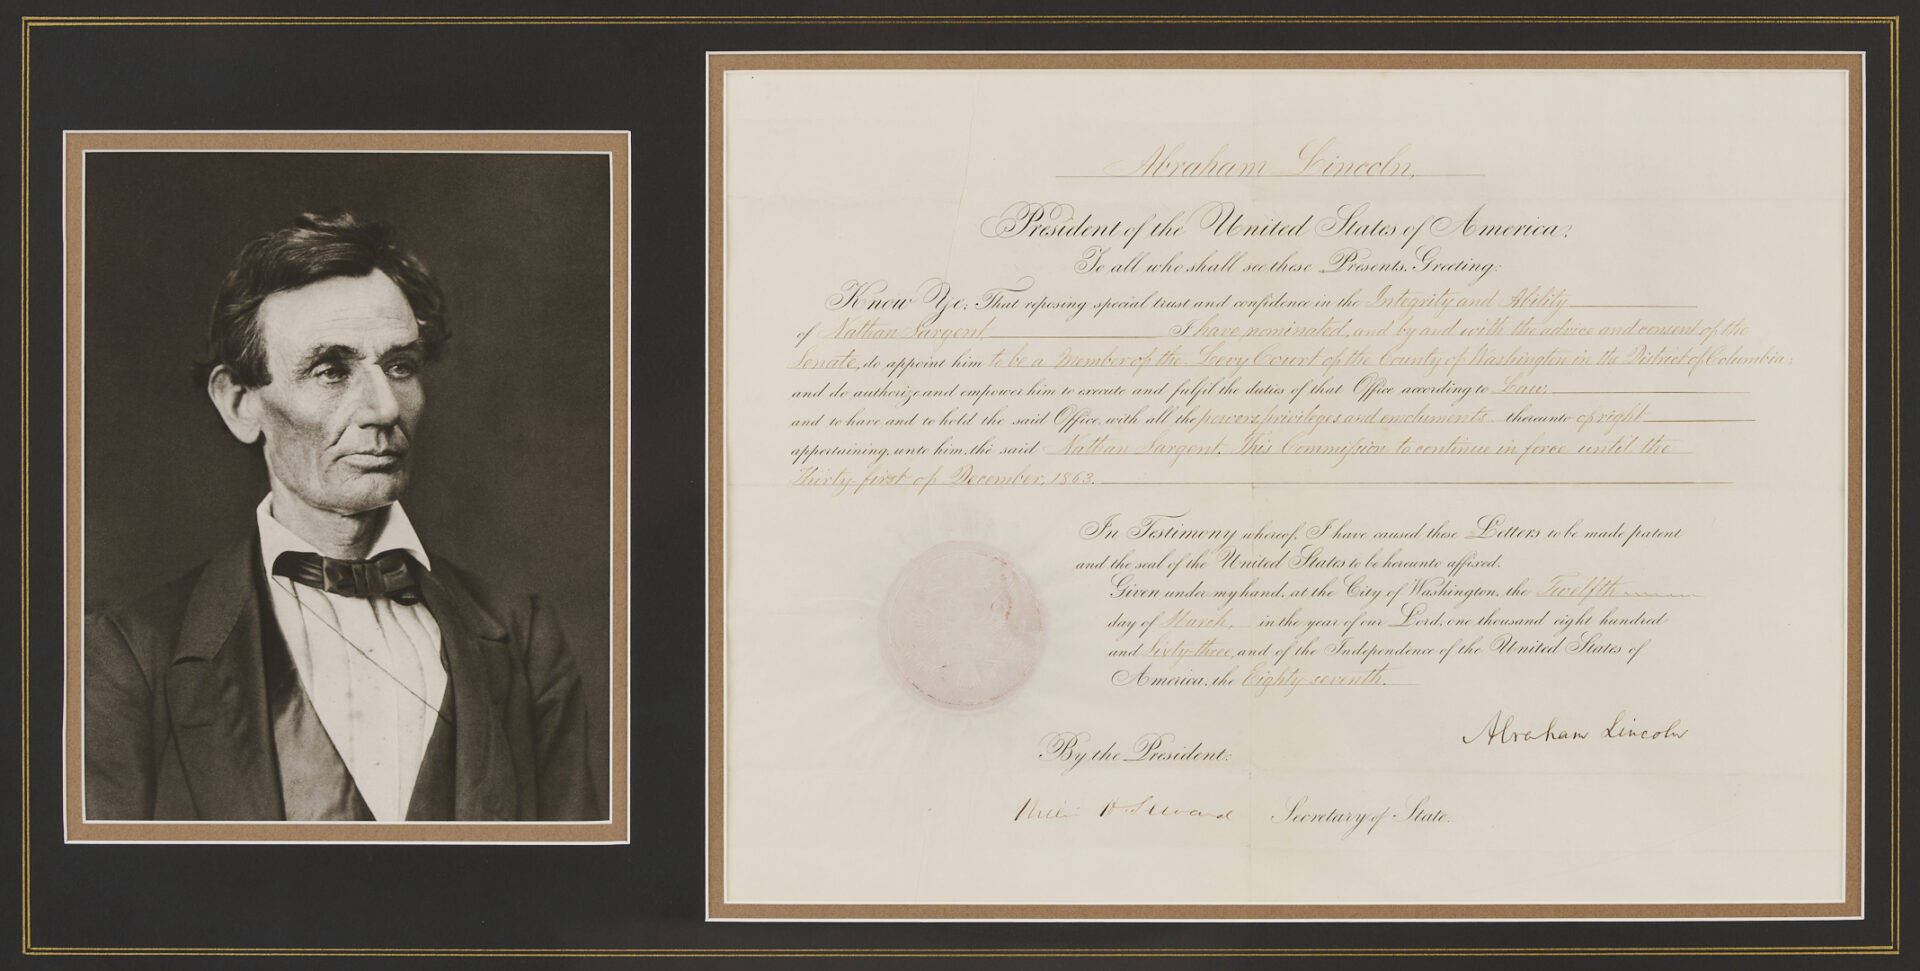 Abraham Lincoln,
President of the United States of America;
To all who shall see these Presents, Greeting:
Know Ye; That reposing special trust and confidence in the Integrity and Ability
of Nathan Sargent, I have nominated, and by and with the advice and consent of the
Senate, do appoint him to be a Member of the Levy Court of the County of Washington in the District of Columbia;
and do authorize and empower him to execute and fulfil the duties of that Office according to Law;
and to have and to hold the said Office, with all the powers privileges and emoluments thereunto of right
appertaining, unto him, the said Nathan Sargent. This Commission to continue in force until the
Thirty-first of December, 1863.
In Testimony whereof, I have caused these Letters to be made patent
and the seal of the United States to be hereunto affixed.
Given under my hand, at the City of Washington, the Twelfth
day of March, in the year of our Lord, one thousand eight hundred
and Sixty-three, and of the Independence of the United States of
America, the Eighty-seventh.
Abraham Lincoln
By the President:
William H. Seward Secretary of State.